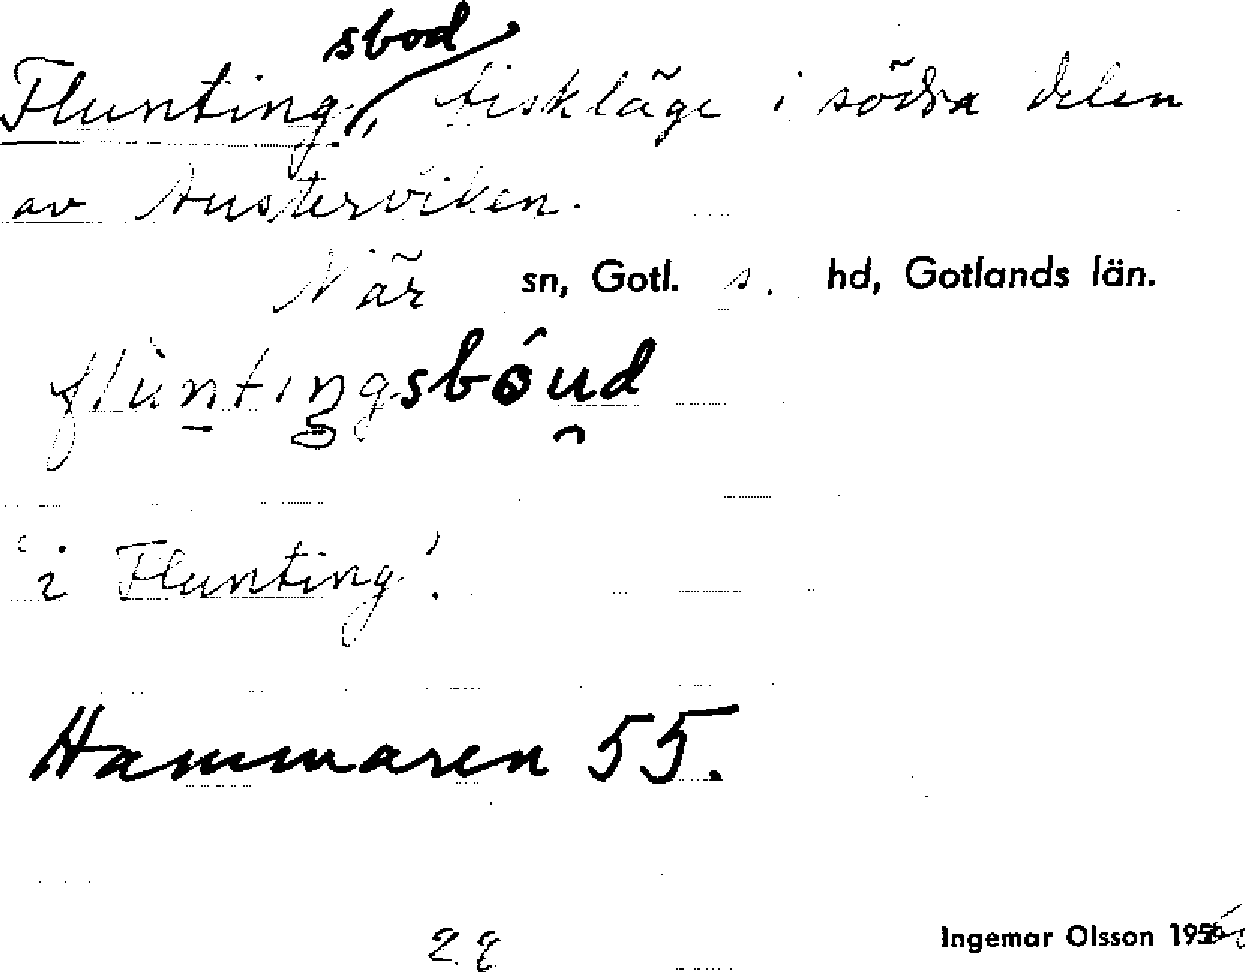 Fluntingsbod, fiskläge i södra delen
av Austerviken.
När sn, Gotl. s. hd, Gotlands län.
flùntıŋgsbóud
'i Flunting'.
Hammaren 55.
Ingemar Olsson